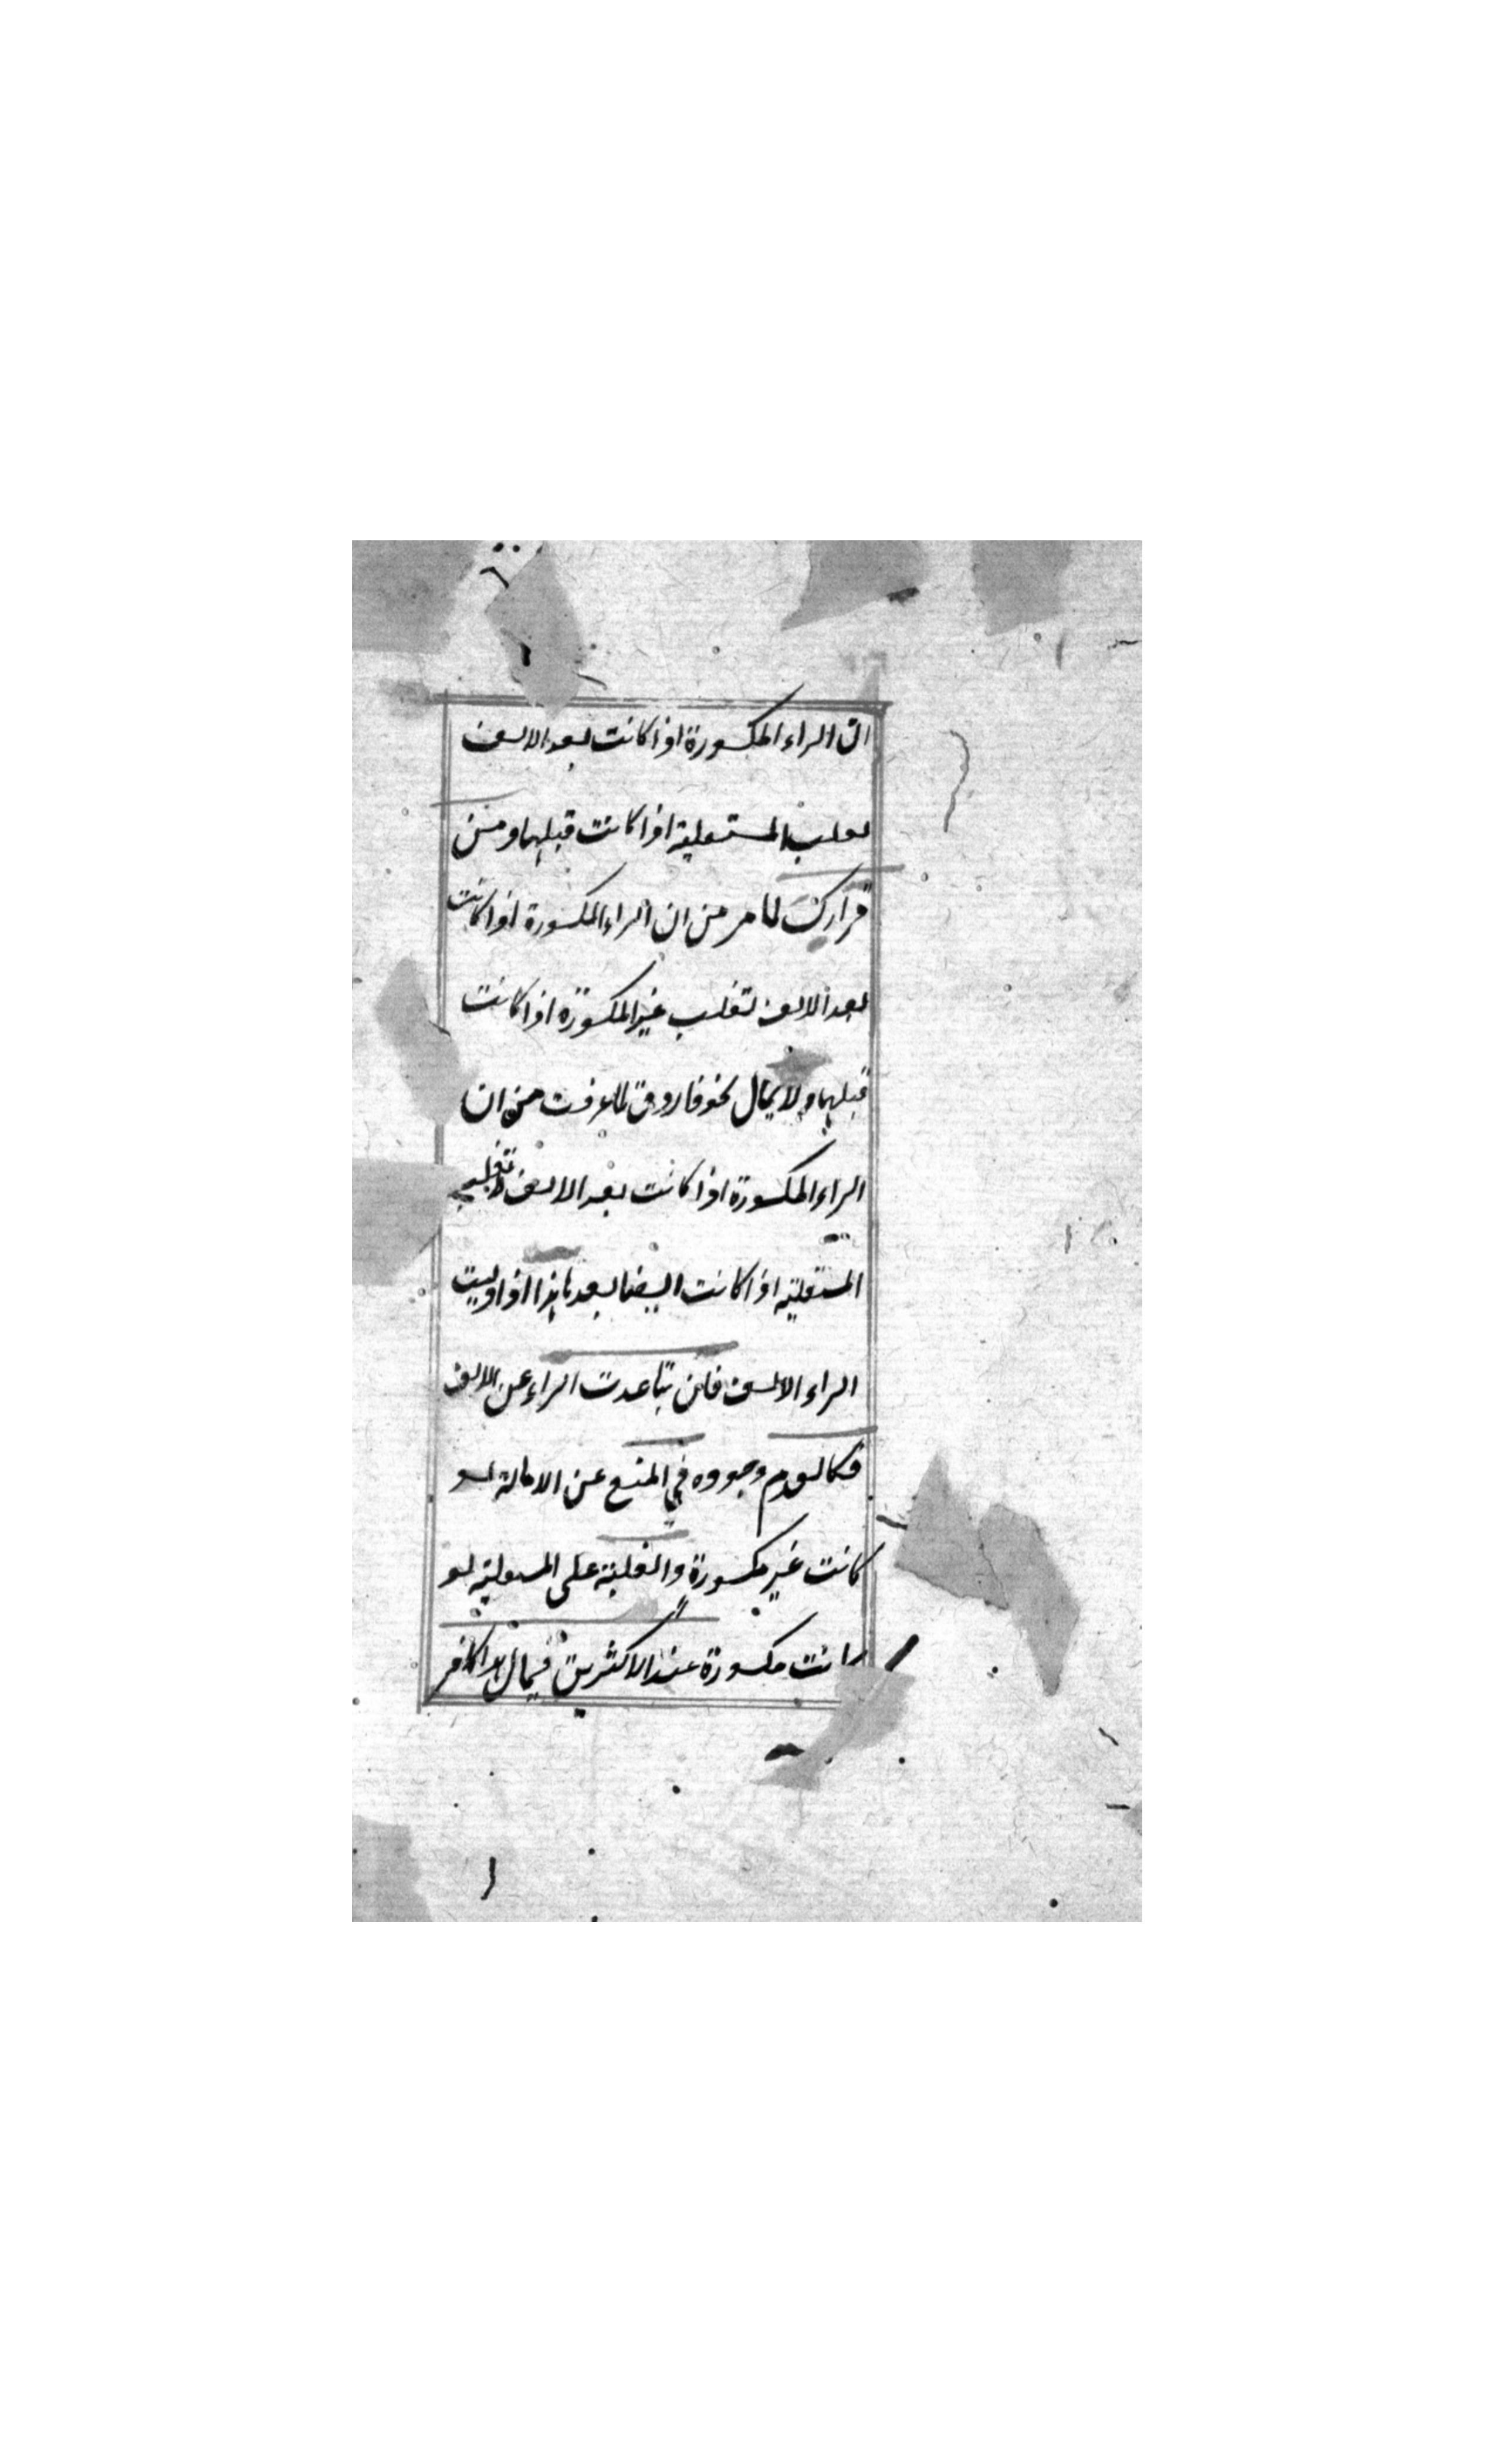 ان الراء المكسورة اذا كانت بعد الالف
تغلب المستعلية اذا كانت قبلها ومن
قرارك لما مر من ان الراء المكسورة اذا كانت
بعد الالف تغلب غير المكسورة اذا كانت
قبلها ولا يمال نحو فاروق لما عرفت من ان
الراء المكسورة اذا كانت بعد الالف تغلب
المستعلية اذا كانت ايضا بعدها هذا اذا وليت
الراء الالف فان تباعدت الراء عن الالف
فكالعدم وجوده في المنع عن الامالة لو
كانت غير مكسورة والغلبة على المستعلية لو
كانت مكسورة عند الاكثرين فيمال هذا كافر